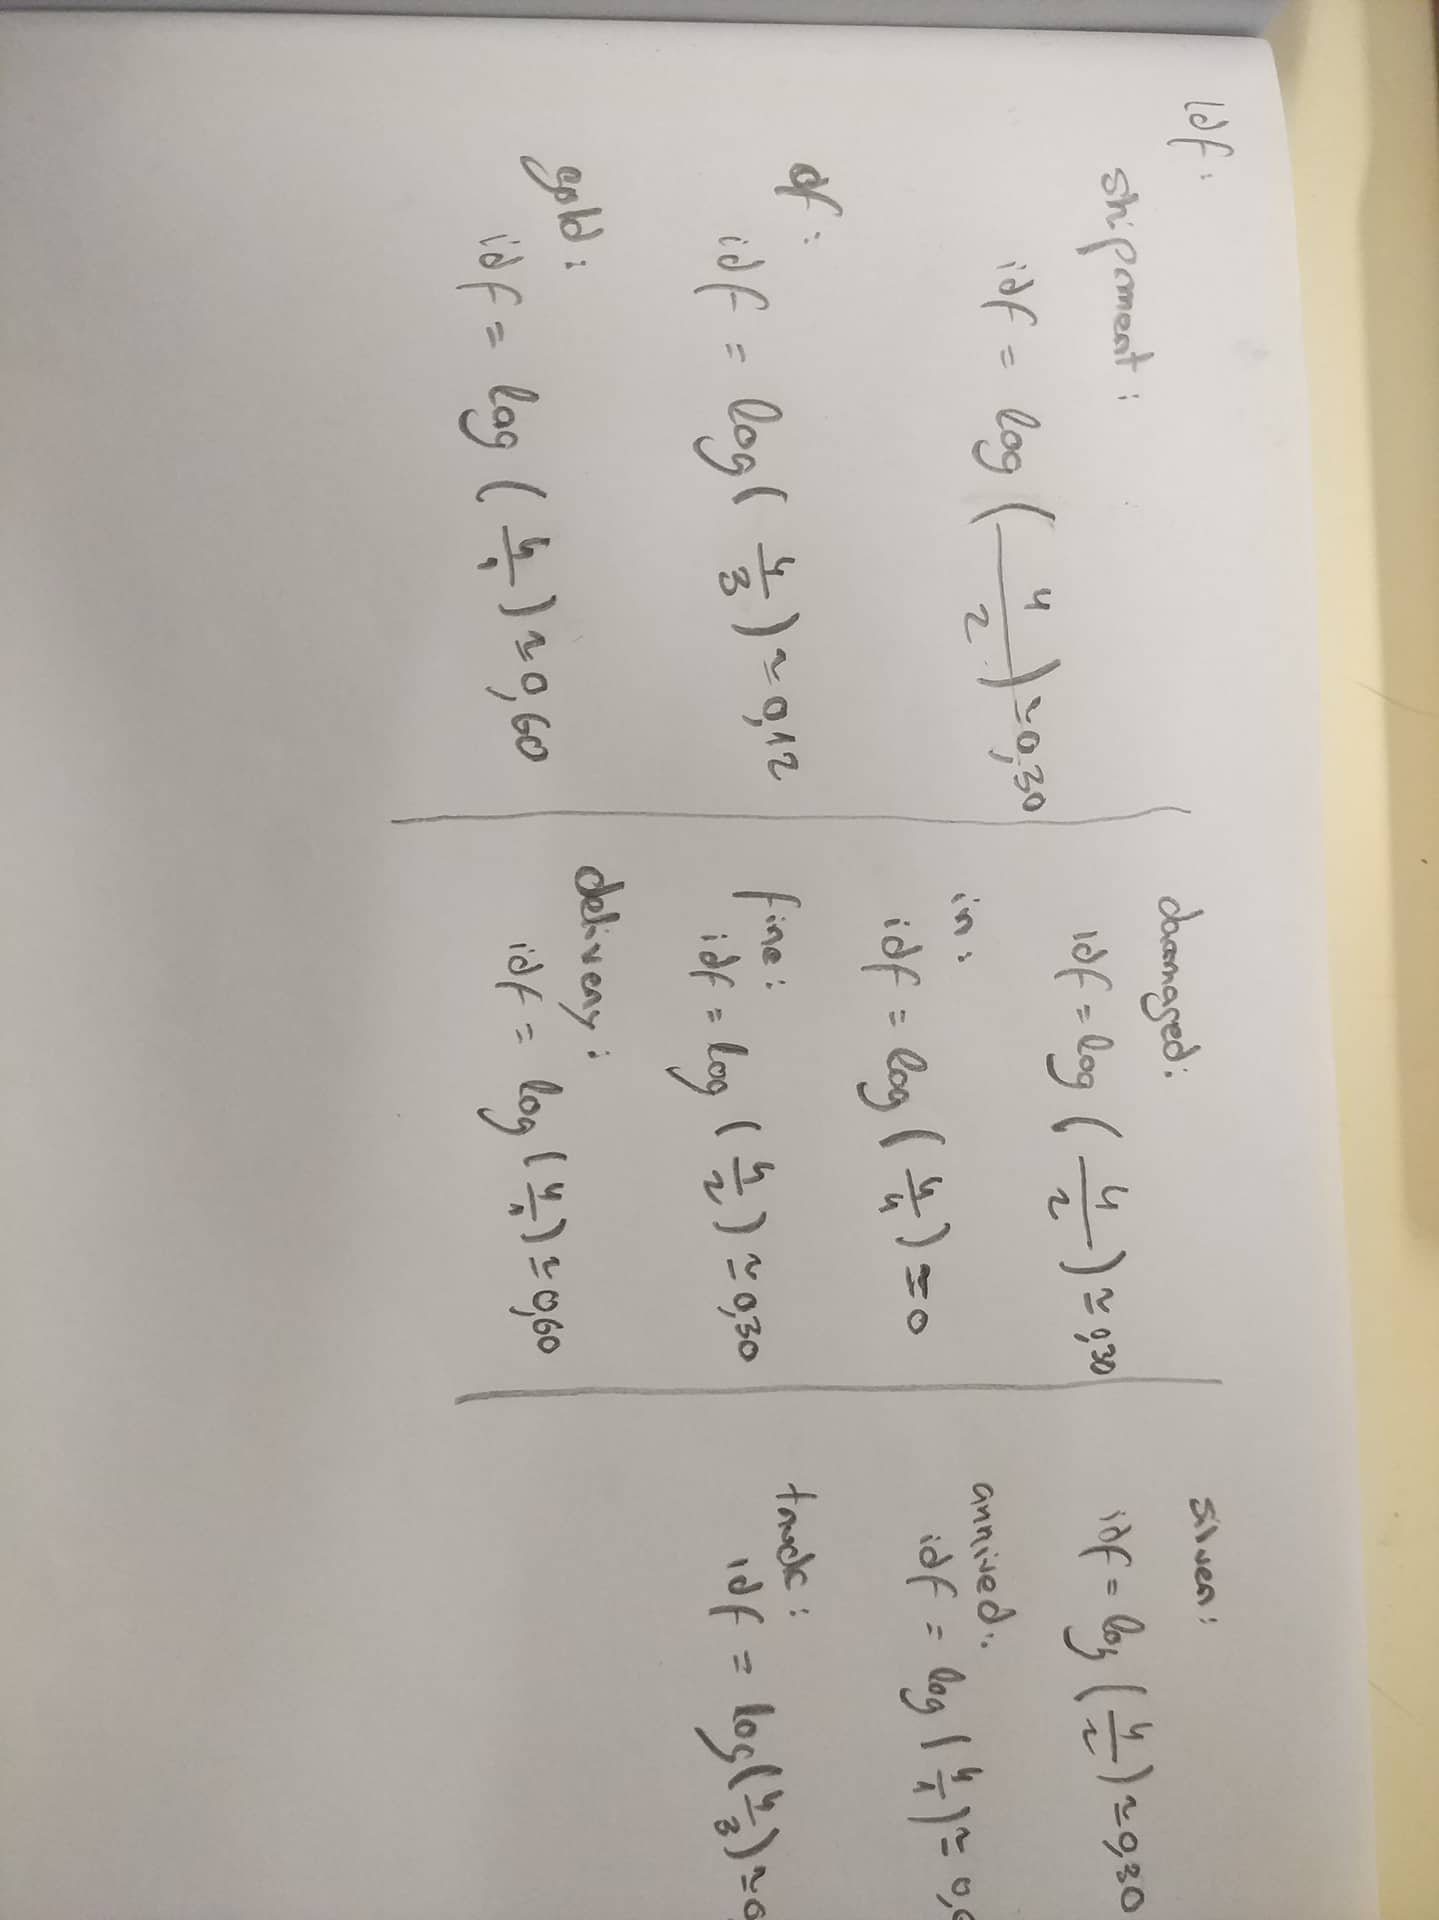 idf:
shipment:
idf = log (4/2) ≃ 0,30
of:
idf = log (4/3) ≃ 0,12
gold:
idf = log (4/1) ≃ 0,60
damaged:
idf = log (4/2) ≃ 0,30
in:
idf = log (4/4) = 0
fine:
idf = log (4/2) ≃ 0,30
delivery:
idf = log (4/1) ≃ 0,60
silver:
idf = log (4/2) ≃ 0,30
arrived:
idf = log (4/1) ≃ 0,
truck:
idf = log (4/3) ≃ 0